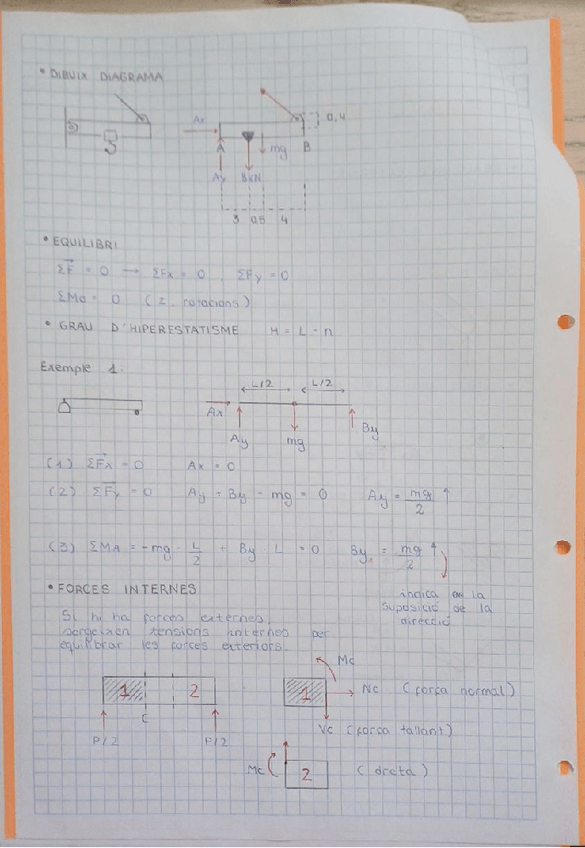 • DIBUIX DIAGRAMA
Ax
0,4
A
mg
B
Ay
8kN
3 0,5 4
• EQUILIBRI
ΣF = 0 → ΣFx = 0, ΣFy = 0
ΣMo = 0 (2. rotacions)
• GRAU D'HIPERESTATISME H = L - n
Exemple 1:
L/2 L/2
Ax
Ay
mg
By
(1) ΣFx = 0 Ax = 0
(2) ΣFy = 0 Ay + By - mg = 0 Ay = mg/2 ↑
(3) ΣMA = -mg · L/2 + By · L = 0 By = mg/2 ↑
• FORCES INTERNES
indica la
suposició de la
direcció
Si hi ha forces externes,
sorgeixen tensions internes per
equilibrar les forces exteriors.
1 2
C
P/2 P/2
Mc
1 Nc (força normal)
Vc (força tallant)
Mc 2 (dreta)